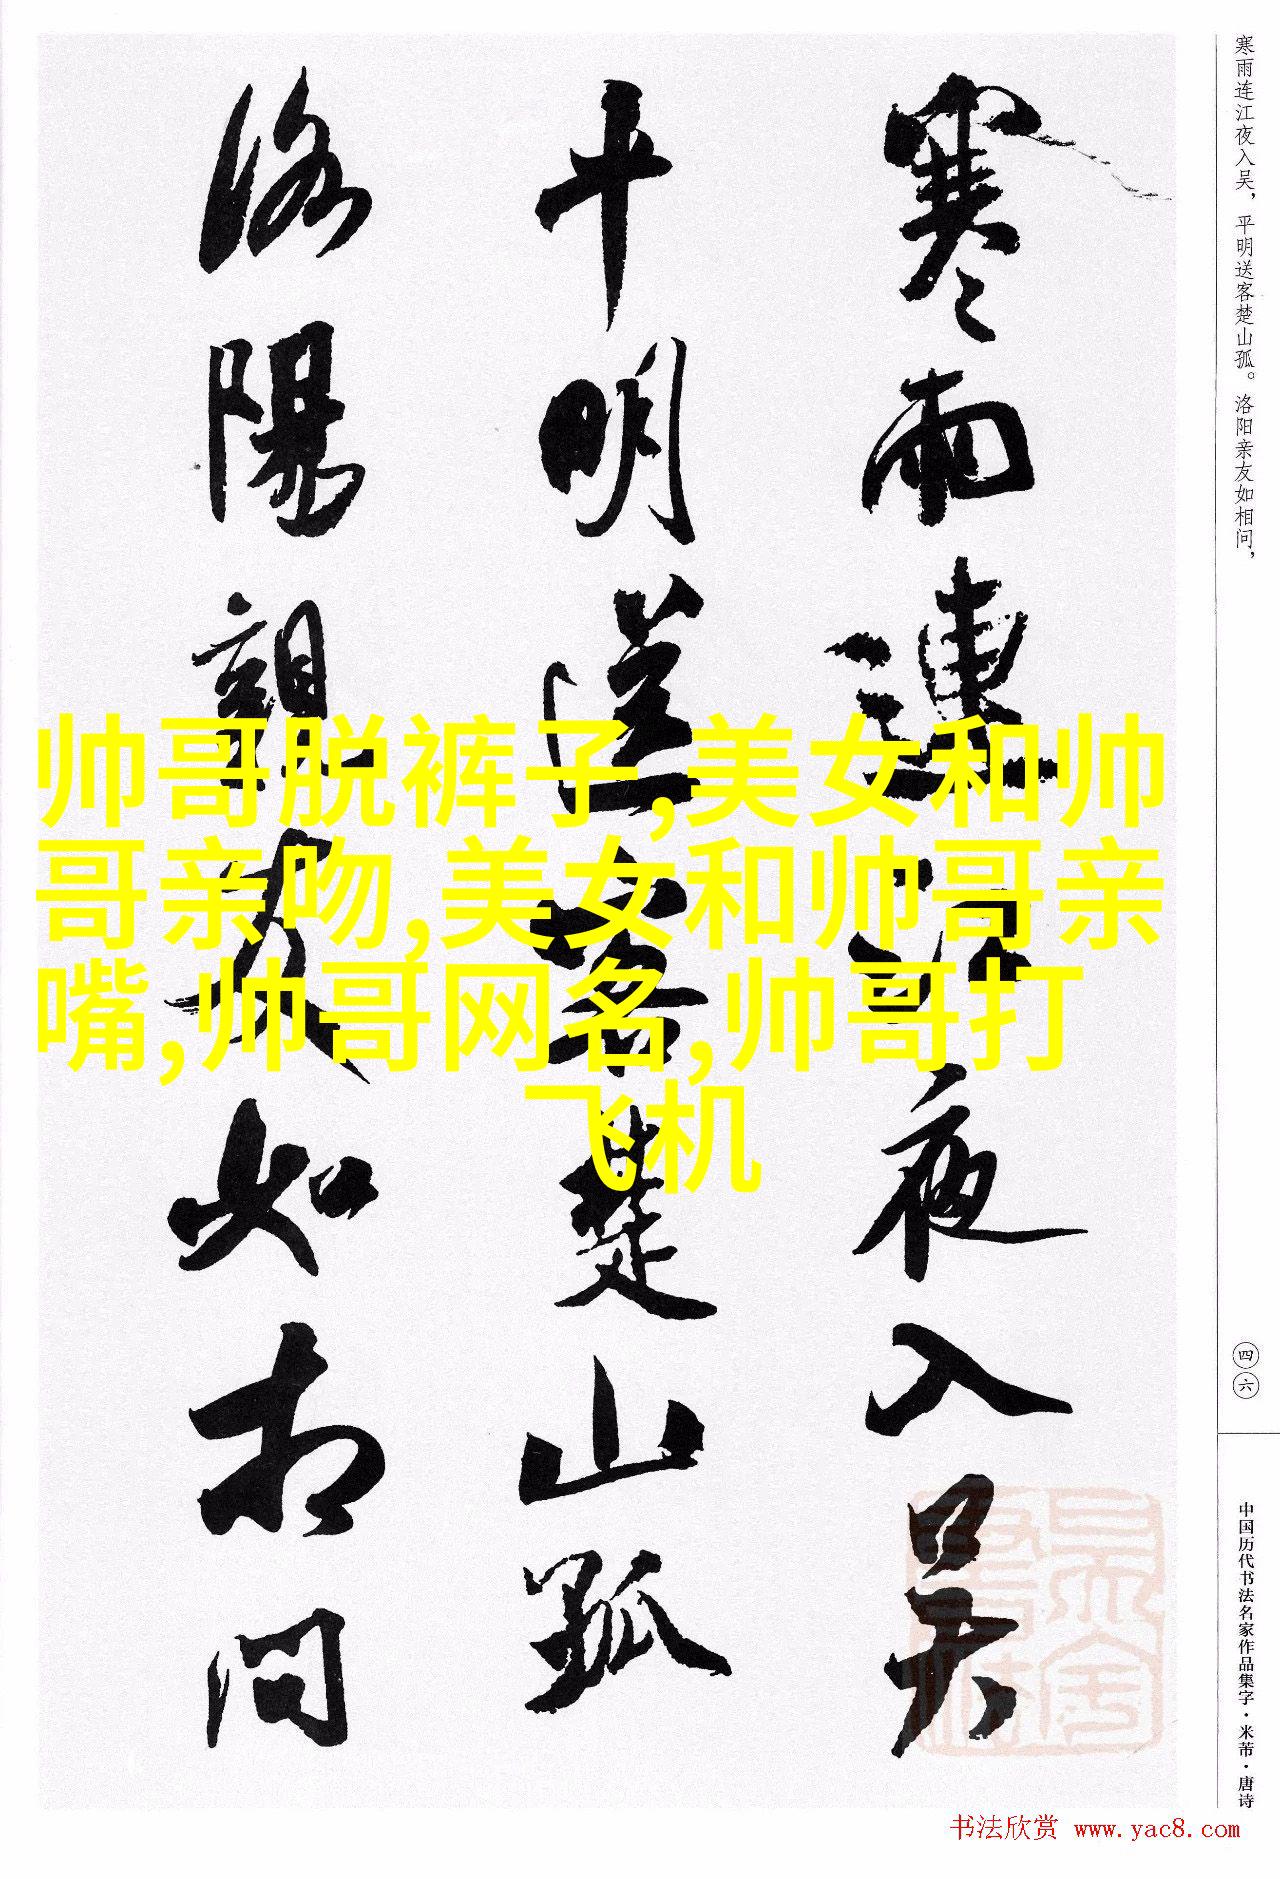 寒雨连江夜入吴，平明送客楚山孤。洛阳亲友如相问，
寒雨連江夜入吴
平明送客楚山孤
洛陽親友如相问
帅哥脱裤子,美女和帅
哥亲吻,美女和帅哥亲
嘴,帅哥网名,帅哥打
飞机
四六
中国历代书法名家作品集字·米芾·唐诗
书法欣赏 www.yac8.com